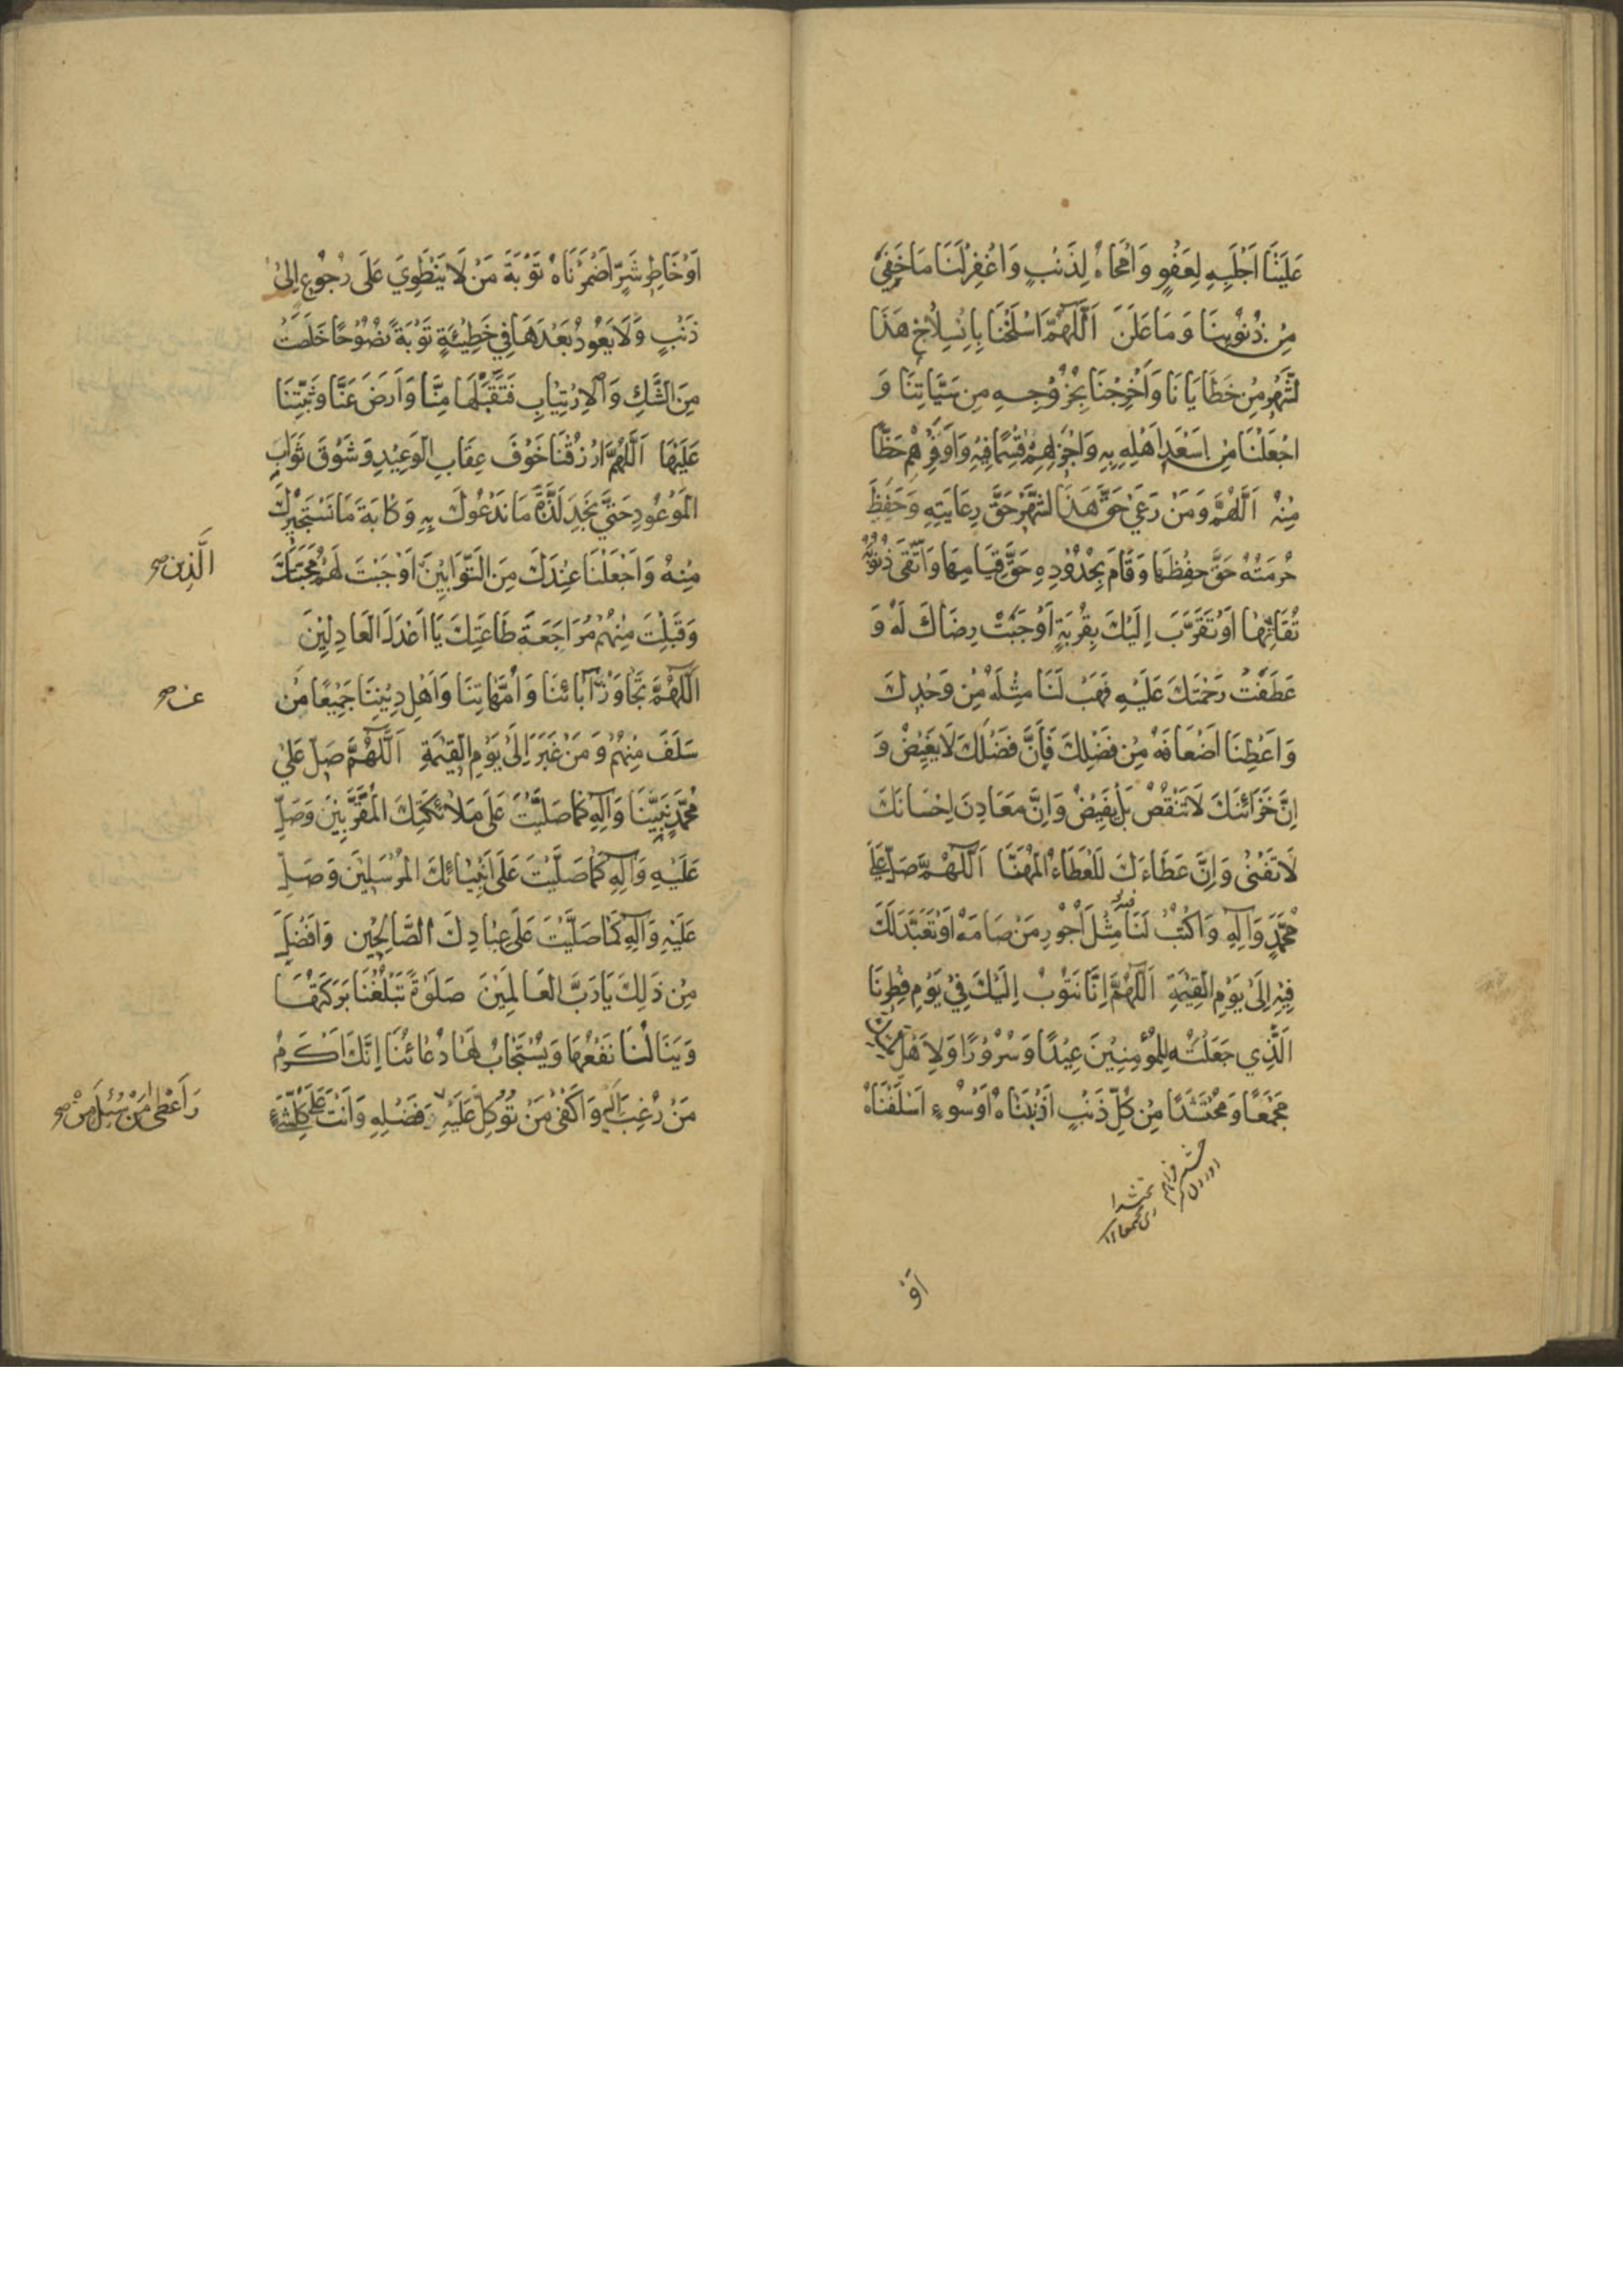 عَلَيْنَا اَجْلَبِهِ لِعَفْوٍ وَاَمْحَاهُ لِذَنْبٍ وَاغْفِرْلَنَا مَا خَفِيَ
مِنْ ذُنُوبِنَا وَمَا عَلَنَ اَللّٰهُمَّ اسْلَخْنَا بِانْسِلَاخِ هَذَا
الشَّهْرِ مِنْ خَطَايَانَا وَاَخْرِجْنَا بِخُرُوجِهِ مِنْ سَيِّئَاتِنَا وَ
اجْعَلْنَا مِنْ اَسْعَدِ اَهْلِهِ بِهِ وَاَجْزَلِهِمْ قِسْمًا فِيْهِ وَاَوْفَرِهِمْ حَظًّا
مِنْهُ اَللّٰهُمَّ وَمَنْ رَعَى حَقَّ هَذَا الشَّهْرِ حَقَّ رِعَايَتِهِ وَحَفِظَ
حُرْمَتَهُ حَقَّ حِفْظِهَا وَقَامَ بِحُدُوْدِهِ حَقَّ قِيَامِهَا وَاتَّقَى ذُنُوْبَهُ
تُقَاتِهَا اَوْ تَقَرَّبَ اِلَيْكَ بِقُرْبَةٍ اَوْجَبَتْ رِضَاكَ لَهُ وَ
عَطَفَتْ رَحْمَتَكَ عَلَيْهِ فَهَبْ لَنَا مِثْلَهُ مِنْ وُجْدِكَ
وَاَعْطِنَا اَضْعَافَهُ مِنْ فَضْلِكَ فَاِنَّ فَضْلَكَ لَا يَغِيْضُ وَ
اِنَّ خَزَائِنَكَ لَا تَنْقُصُ بَلْ يَفِيْضُ وَاِنَّ مَعَادِنَ اِحْسَانِكَ
لَا تَفْنٰى وَاِنَّ عَطَاءَكَ لَلْعَطَاءُ الْمُهَنَّا اَللّٰهُمَّ صَلِّ عَلَى
مُحَمَّدٍ وَآلِهِ وَاكْتُبْ لَنَا مِثْلَ اُجُوْرِ مَنْ صَامَهُ اَوْ تَعَبَّدَ لَكَ
فِيْهِ اِلَى يَوْمِ الْقِيٰمَةِ اَللّٰهُمَّ اِنَّا نَتُوْبُ اِلَيْكَ فِيْ يَوْمِ فِطْرِنَا
الَّذِي جَعَلْتَهُ لِلْمُؤْمِنِيْنَ عِيْدًا وَسُرُوْرًا وَلِاَهْلِ مِلَّتِكَ
مَجْمَعًا وَمُحْتَشَدًا مِنْ كُلِّ ذَنْبٍ اَذْنَبْنَاهُ اَوْ سُوْءٍ اَسْلَفْنَاهُ
اَوْ
اَوْ خَاطِرِ شَرٍّ اَضْمَرْنَاهُ تَوْبَةَ مَنْ لَا يَنْطَوِيْ عَلَى رُجُوْعٍ اِلَى
ذَنْبٍ وَلَا يَعُوْدُ بَعْدَهَا فِيْ خَطِيْئَةٍ تَوْبَةً نَصُوْحًا خَلَصَتْ
مِنَ الشَّكِّ وَالْاِرْتِيَابِ فَتَقَبَّلْهَا مِنَّا وَارْضَ عَنَّا وَثَبِّتْنَا
عَلَيْهَا اَللّٰهُمَّ ارْزُقْنَا خَوْفَ عِقَابِ الْوَعِيْدِ وَشَوْقَ ثَوَابِ
الْمَوْعُوْدِ حَتَّى نَجِدَ لَذَّةَ مَا نَدْعُوْكَ بِهِ وَكَابَةَ مَا نَسْتَجِيْرُكَ
مِنْهُ وَاجْعَلْنَا عِنْدَكَ مِنَ التَّوَّابِيْنَ اَوْجَبْتَ لَهُمْ مَحَبَّتَكَ
الَّذِيْنَ صح
وَقَبِلْتَ مِنْهُمْ مُرَاجَعَةَ طَاعَتِكَ يَا اَعْدَلَ الْعَادِلِيْنَ
اَللّٰهُمَّ تَجَاوَزْ آبَائِنَا وَاُمَّهَاتِنَا وَاَهْلِ دِيْنِنَا جَمِيْعًا مَنْ
عن صح
سَلَفَ مِنْهُمْ وَمَنْ غَبَرَ اِلَى يَوْمِ الْقِيٰمَةِ اَللّٰهُمَّ صَلِّ عَلَى
مُحَمَّدٍ نَبِيِّنَا وَآلِهِ كَمَا صَلَّيْتَ عَلَى مَلَائِكَتِكَ الْمُقَرَّبِيْنَ وَصَلِّ
عَلَيْهِ وَآلِهِ كَمَا صَلَّيْتَ عَلَى اَنْبِيَائِكَ الْمُرْسَلِيْنَ وَصَلِّ
عَلَيْهِ وَآلِهِ كَمَا صَلَّيْتَ عَلَى عِبَادِكَ الصَّالِحِيْنَ وَاَفْضَلَ
مِنْ ذَلِكَ يَا رَبَّ الْعَالَمِيْنَ صَلٰوةً تَبْلُغُنَا بَرَكَتُهَا
وَيَنَالُنَا نَفْعُهَا وَيُسْتَجَابُ لَهَا دُعَائُنَا اِنَّكَ اَكْرَمُ
مَنْ رُغِبَ اِلَيْهِ وَاَكْفٰى مَنْ تُوُكِّلَ عَلَيْهِ فَضْلِهِ وَاَنْتَ عَلَى كُلِّ شَيْءٍ
وَاَعْطٰى مَنْ سُئِلَ مِنْ صح